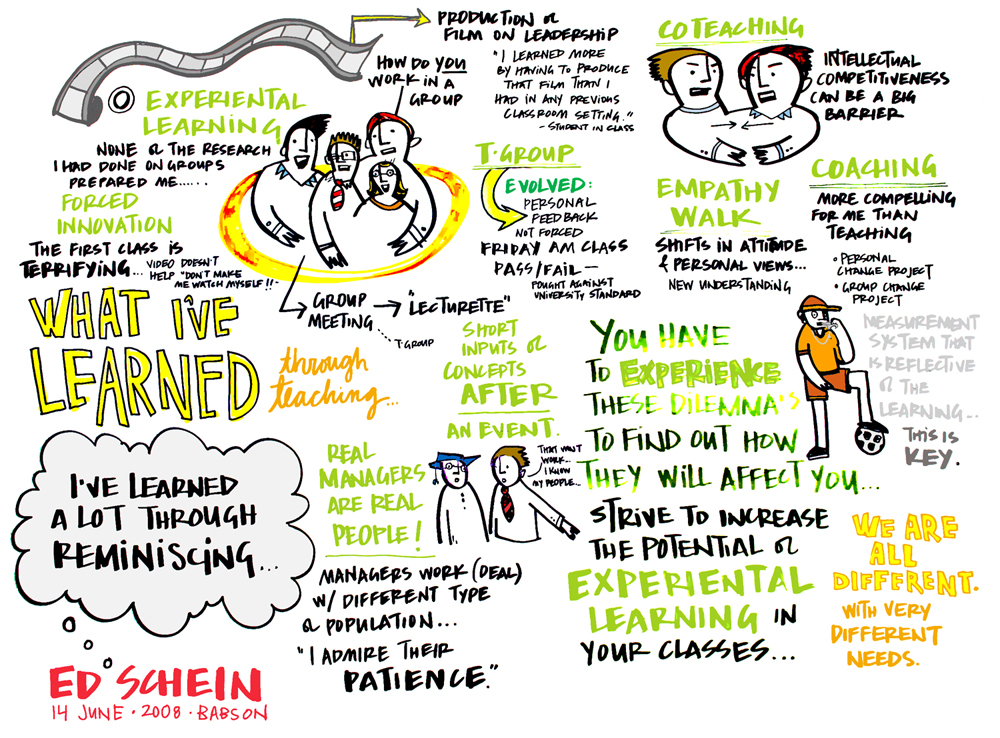 PRODUCTION OF
FILM ON LEADERSHIP
HOW DO YOU
WORK IN A
GROUP
"I LEARNED MORE
BY HAVING TO PRODUCE
THAT FILM THAN I
HAD IN ANY PREVIOUS
CLASSROOM SETTING."
- STUDENT IN CLASS
COTEACHING
INTELLECTUAL
COMPETITIVENESS
CAN BE A BIG
BARRIER
EXPERIENTIAL
LEARNING
NONE OF THE RESEARCH
I HAD DONE ON GROUPS
PREPARED ME......
FORCED
INNOVATION
THE FIRST CLASS IS
TERRIFYING...
VIDEO DOESN'T
HELP "DON'T MAKE
ME WATCH MYSELF!!"
T-GROUP
EVOLVED:
PERSONAL
FEEDBACK
NOT FORCED
FRIDAY AM CLASS
PASS/FAIL—
FOUGHT AGAINST
UNIVERSITY STANDARD
EMPATHY
WALK
SHIFTS IN ATTITUDE
& PERSONAL VIEWS...
NEW UNDERSTANDING
COACHING
MORE COMPELLING
FOR ME THAN
TEACHING
• PERSONAL
CHANGE PROJECT
• GROUP CHANGE
PROJECT
GROUP
MEETING
"LECTURETTE"
T-GROUP
WHAT I'VE
LEARNED
through
teaching...
SHORT
INPUTS OF
CONCEPTS
AFTER
AN EVENT.
YOU HAVE
TO EXPERIENCE
THESE DILEMMA'S
TO FIND OUT HOW
THEY WILL AFFECT YOU...
MEASUREMENT
SYSTEM THAT
IS REFLECTIVE
OF THE
LEARNING...
THIS IS
KEY.
I'VE LEARNED
A LOT THROUGH
REMINISCING...
REAL
MANAGERS
ARE REAL
PEOPLE!
THAT WON'T
WORK...
I KNOW
MY PEOPLE...
MANAGERS WORK (DEAL)
W/ DIFFERENT TYPE
OF POPULATION...
"I ADMIRE THEIR
PATIENCE."
STRIVE TO INCREASE
THE POTENTIAL OF
EXPERIENTIAL
LEARNING IN
YOUR CLASSES...
WE ARE
ALL
DIFFERENT.
WITH VERY
DIFFERENT
NEEDS.
ED SCHEIN
14 JUNE • 2008 • BABSON